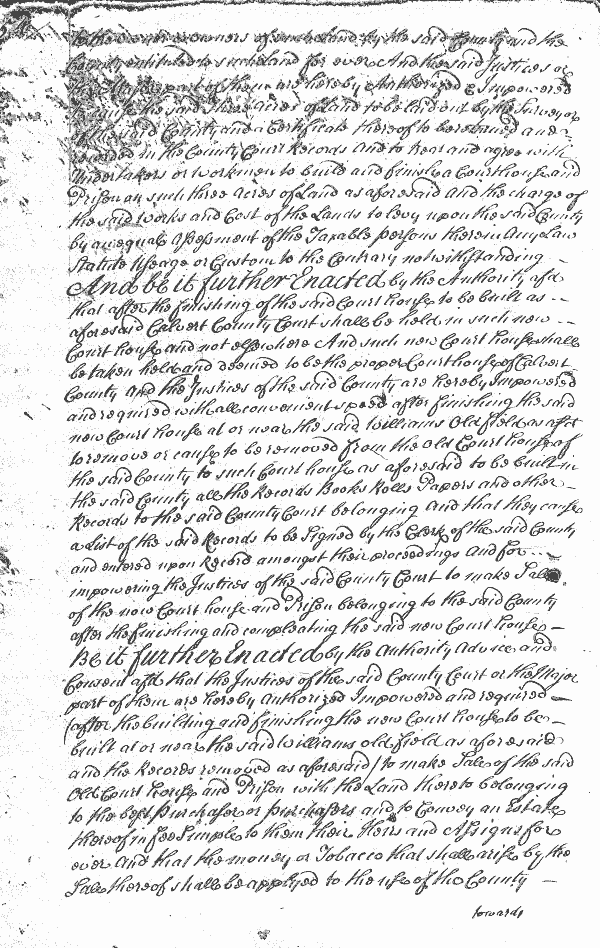 to the owner or owners of such Land by the said County and the
County entituled to such Land for ever And the said Justices or
the Major part of them are hereby Authorized & Impowered
to cause the said three acres of Land to be laid out by the Surveyor
of the said County and a Certificate thereof to be returned and
recorded in the County Court Records and to Treat and agree with
Undertakers or workmen to build and finish a Courthouse and
Prison on such three acres of Land as aforesaid and the charge of
the said works and Cost of the Lands to levy upon the said County
by an equal Assessment of the Taxable persons therein Any Law
Statute Usage or Custom to the Contrary notwithstanding
And be it further Enacted by the Authority afd
that after the finishing of the said Court house to be built as
aforesaid Calvert County Court shall be held in such new
Court house and not elsewhere And such new Court house shall
be taken held and deemed to be the proper Courthouse of Calvert
County And the Justices of the said County are hereby Impowered
and required with all convenient speed after finishing the said
new Court house at or near the said Williams Old field as afsd
to remove or cause to be removed from the Old Court house of
the said County to such Court house as aforesaid to be built in
the said County all the Records Books Rolls Papers and other
Records to the said County Court belonging And that they cause
a List of the said Records to be Signed by the Clerk of the said County
and entered upon Record amongst their proceedings And for
impowering the Justices of the said County Court to make Sale
of the now Court house and Prison belonging to the said County
after the finishing and compleating the said new Court house
Be it further Enacted by the Authority Advice and
Consent afd that the Justices of the said County Court or the Major
part of them are hereby Authorized Impowered and required
(after the building and finishing the new Court house to be
built at or near the said Williams old field as aforesaid
and the Records removed as aforesaid) to make Sale of the said
Old Court house and Prison with the Land thereto belonging
to the best purchaser or purchasers and to Convey an Estate
thereof in Fee Simple to them their Heirs and Assigns for
ever And that the money or Tobacco that shall arise by the
Sale thereof shall be applyed to the use of the County
towards